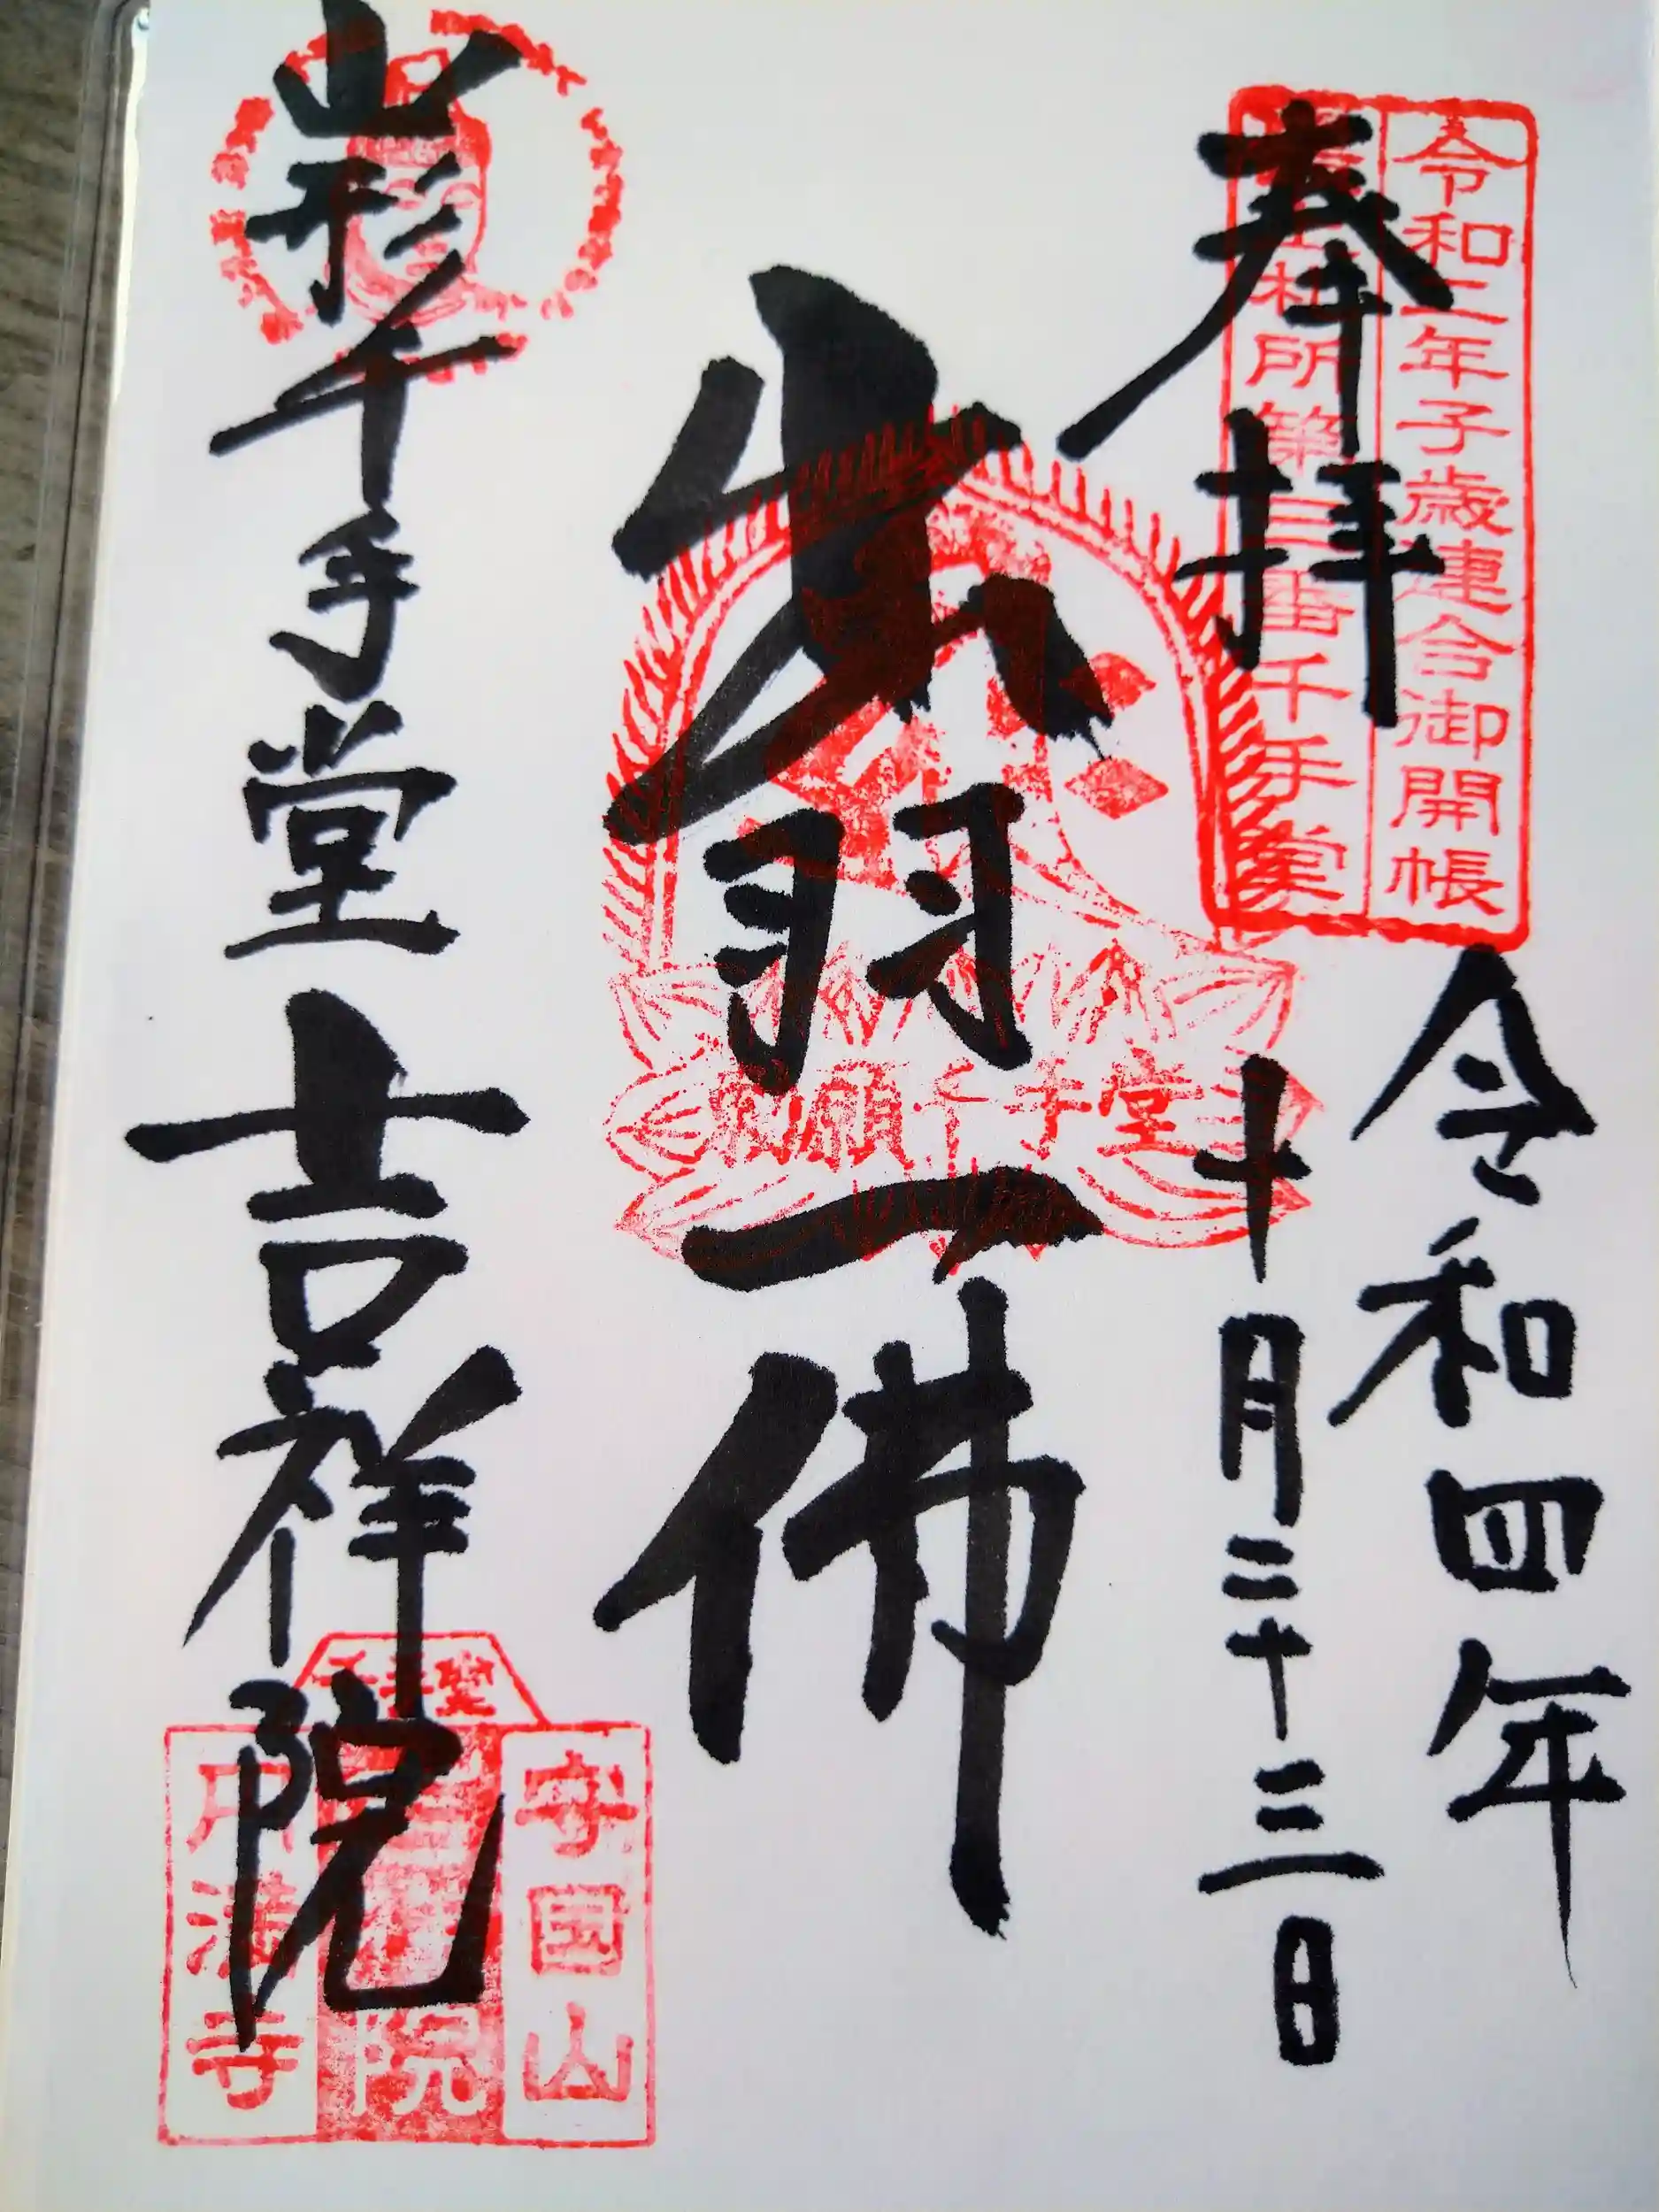 令和二年子歳連合御開帳
札所第三番千手堂
奉拝
令和四年
十月二十三日
出羽一佛
願千手堂
山形千手堂吉祥院
千手堂
守国山
院
円満寺